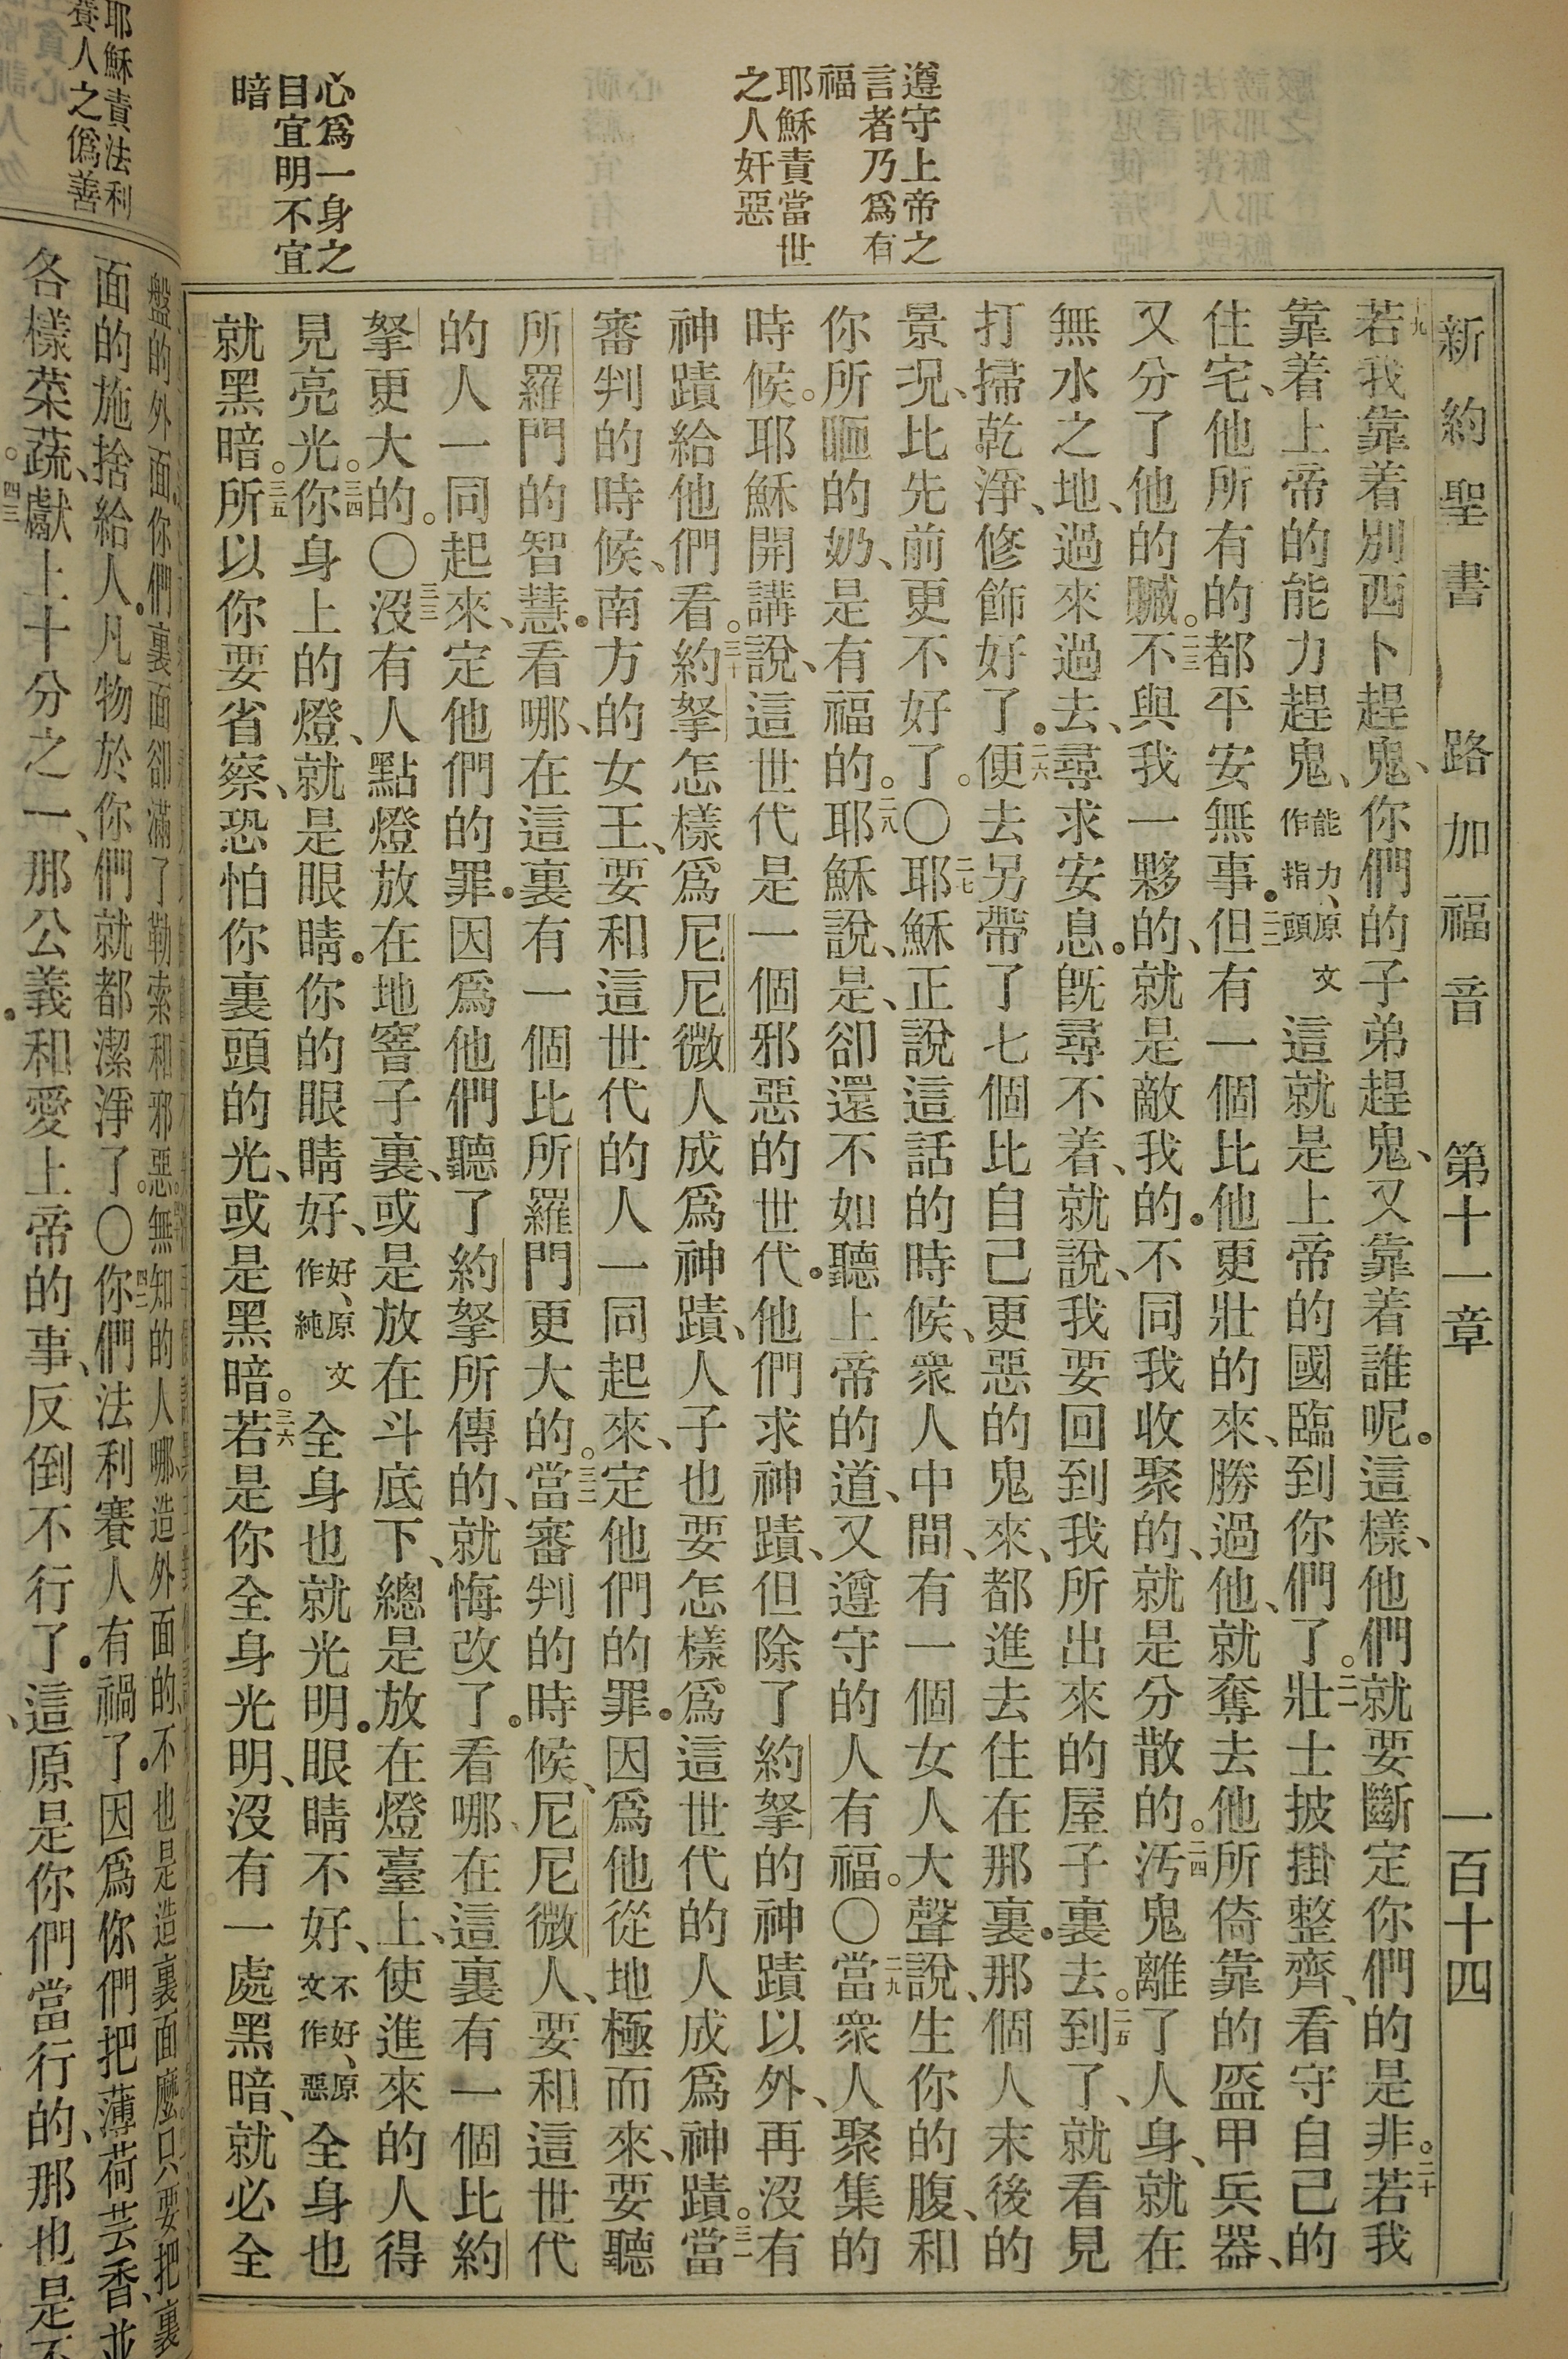 新約聖書 路加福音 第十一章 一百十四
遵守上帝之
言者乃爲有
福
耶穌責當世
之人奸惡
心爲一身之
目宜明不宜
暗
十九若我靠着別西卜趕鬼、你們的子弟趕鬼、又靠着誰呢．這樣、他們就要斷定你們的是非。二十若我
靠着上帝的能力趕鬼、能力、原文作指頭這就是上帝的國臨到你們了。二一壯士披掛整齊、看守自己的
住宅、他所有的都平安無事．二二但有一個比他更壯的來、勝過他、就奪去他所倚靠的盔甲兵器、
又分了他的贓。二三不與我一夥的、就是敵我的．不同我收聚的、就是分散的。二四汚鬼離了人身、就在
無水之地、過來過去、尋求安息．旣尋不着、就說、我要回到我所出來的屋子裏去。二五到了、就看見
打掃乾淨、修飾好了．二六便去另帶了七個比自己更惡的鬼來、都進去住在那裏．那個人末後的
景況、比先前更不好了。〇二七耶穌正說這話的時候、衆人中間、有一個女人大聲說、生你的腹、和
你所咂的奶、是有福的。二八耶穌說、是、卻還不如聽上帝的道、又遵守的人有福。〇二九當衆人聚集的
時候。耶穌開講說、這世代是一個邪惡的世代．他們求神蹟、但除了約拏的神蹟以外、再沒有
神蹟給他們看。三十約拏怎樣爲尼尼微人成爲神蹟、人子也要怎樣爲這世代的人成爲神蹟。三一當
審判的時候、南方的女王、要和這世代的人一同起來、定他們的罪．因爲他從地極而來、要聽
所羅門的智慧．看哪、在這裏有一個比所羅門更大的。三二當審判的時候、尼尼微人、要和這世代
的人一同起來、定他們的罪．因爲他們聽了約拏所傳的、就悔改了．看哪、在這裏有一個比約
拏更大的。〇三三沒有人點燈放在地窖子裏、或是放在斗底下、總是放在燈臺上、使進來的人得
見亮光。三四你身上的燈、就是眼睛．你的眼睛好、好、原文作純全身也就光明．眼睛不好、不好、原文作惡全身也
就黑暗。三五所以你要省察、恐怕你裏頭的光、或是黑暗。三六若是你全身光明、沒有一處黑暗、就必全
耶穌責法利
賽人之僞善
盤的外面、你們裏面卻滿了勒索和邪惡。無知的人哪、造外面的、不也是造裏面麼．只要把裏
面的施捨給人．凡物於你們就都潔淨了。〇四二你們法利賽人有禍了．因爲你們把薄荷芸香、並
各樣菜蔬、獻上十分之一、那公義和愛上帝的事、反倒不行了．這原是你們當行的、那也是不